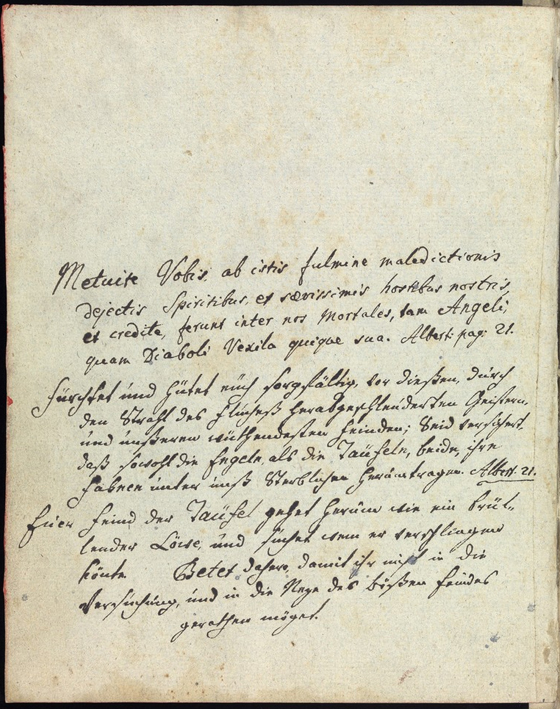 Metuite Vobis, ab istis fulmine maledictionis
dejectis Spiritibus, et sævissimis hostibus nostris,
et credite, ferunt inter nos Mortales, tam Angeli,
quam Diaboli Vexila quique sua. Albert: pag: 21.
Fürchtet und hütet eüch sorgfältig, vor dießen, durch
den Strahl des Flucheß herabgeschleüderten Geistern,
und unßeren wüthendesten Feinden; Seid versichert,
daß sowohl die Engeln, als die Taüfeln, beide, ihre
Fahnen unter unß Sterblichen herumtragen. Albert. 21.
Eüer Feind der Taüfel gehet herum wie ein brül-
lender Löwe, und suchet wem er verschlingen
könte. Betet daher, damit ihr nicht in die
Versuchung, und in die Neze des bößen Feindes
gerathen möget.